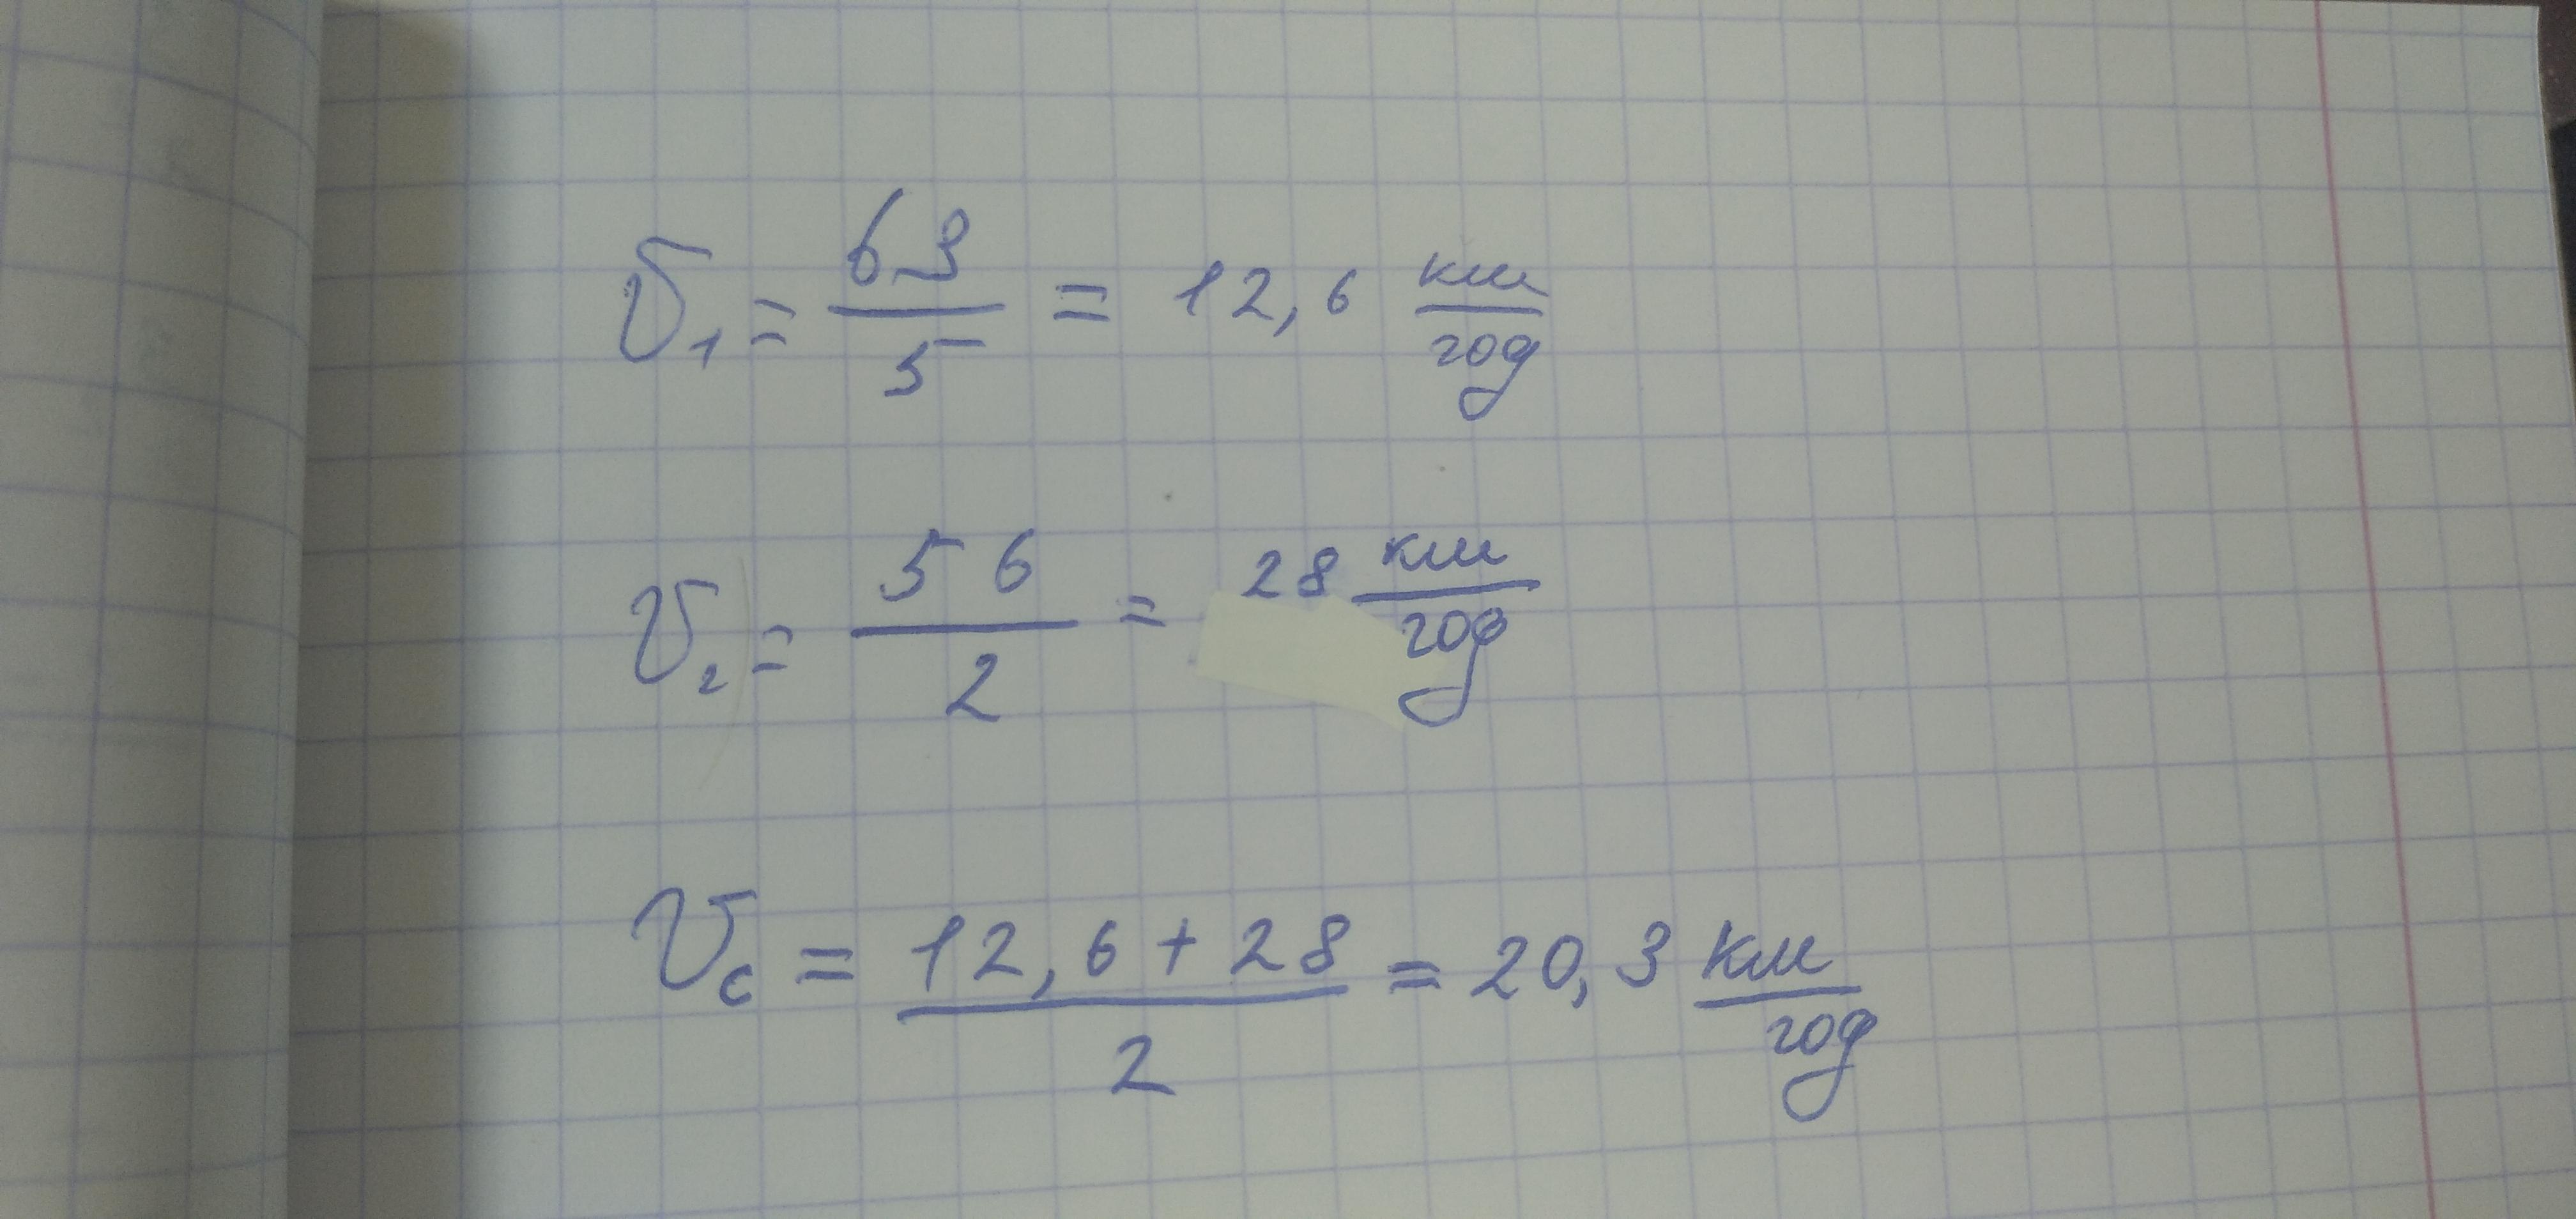 υ₁ = 63/5 = 12,6 км/год
υ₂ = 56/2 = 28 км/год
υc = (12,6 + 28)/2 = 20,3 км/год